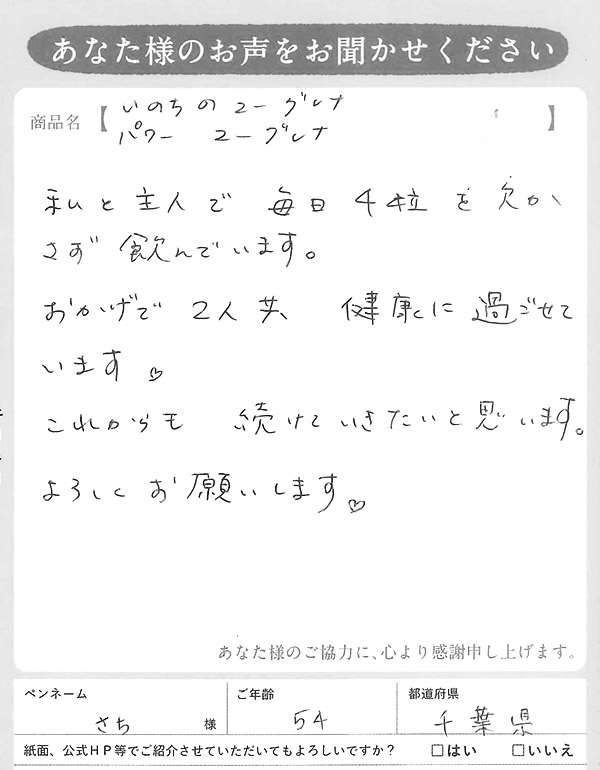 あなた様のお声をお聞かせください
商品名【いのちのユーグレナ
パワー ユーグレナ】
私と主人で 毎日 4粒 を 欠か
さず 飲んでいます。
おかげで 2人共、 健康に 過ごせて
います♡
これからも 続けていきたいと思います。
よろしく お願いします♡
あなた様のご協力に、心より感謝申し上げます。
ペンネーム ご年齢 都道府県
さち 様 54 千葉県
紙面、公式HP等でご紹介させていただいてもよろしいですか? □はい □いいえ